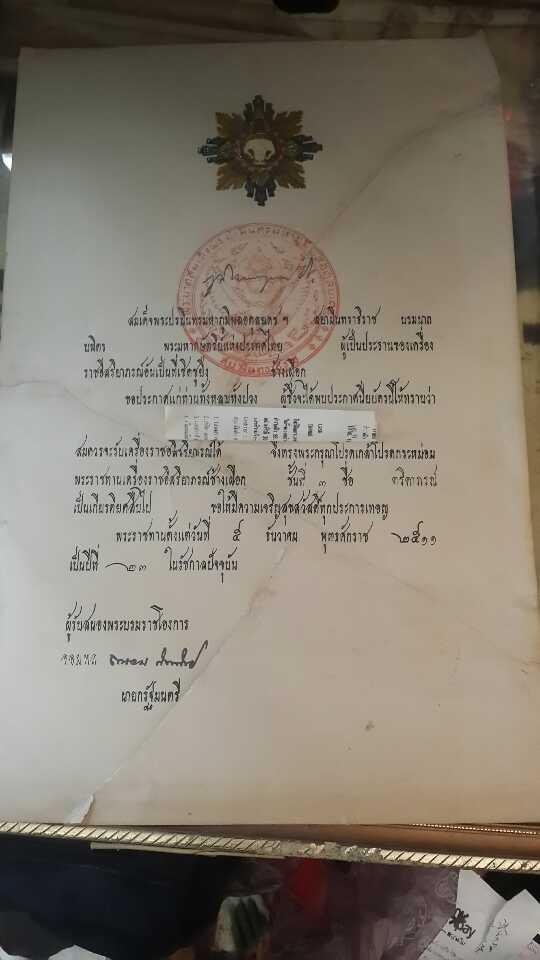 สมเด็จพระปรมินทรมหาภูมิพลอดุลยเดช ฯ สยามินทราธิราช บรมนาถ
บพิตร พระมหากษัตริย์แห่งประเทศไทย ผู้เป็นประธานของเครื่อง
ราชอิสริยาภรณ์อันเป็นที่เชิดชูยิ่ง ช้างเผือก
ขอประกาศแก่ท่านทั้งหลายทั้งปวง ผู้ซึ่งจะได้พบประกาศนียบัตรนี้ให้ทราบว่า
สมควรจะรับเครื่องราชอิสริยาภรณ์ได้ จึงทรงพระกรุณาโปรดเกล้าโปรดกระหม่อม
พระราชทานเครื่องราชอิสริยาภรณ์ช้างเผือก ชั้นที่ ๓ ชื่อ ตริตาภรณ์
เป็นเกียรติยศสืบไป ขอให้มีความเจริญสุขสวัสดิ์ทุกประการเทอญ
พระราชทานตั้งแต่วันที่ ๕ ธันวาคม พุทธศักราช ๒๕๑๑
เป็นปีที่ ๒๓ ในรัชกาลปัจจุบัน
ผู้รับสนองพระบรมราชโองการ
จอมพล
นายกรัฐมนตรี